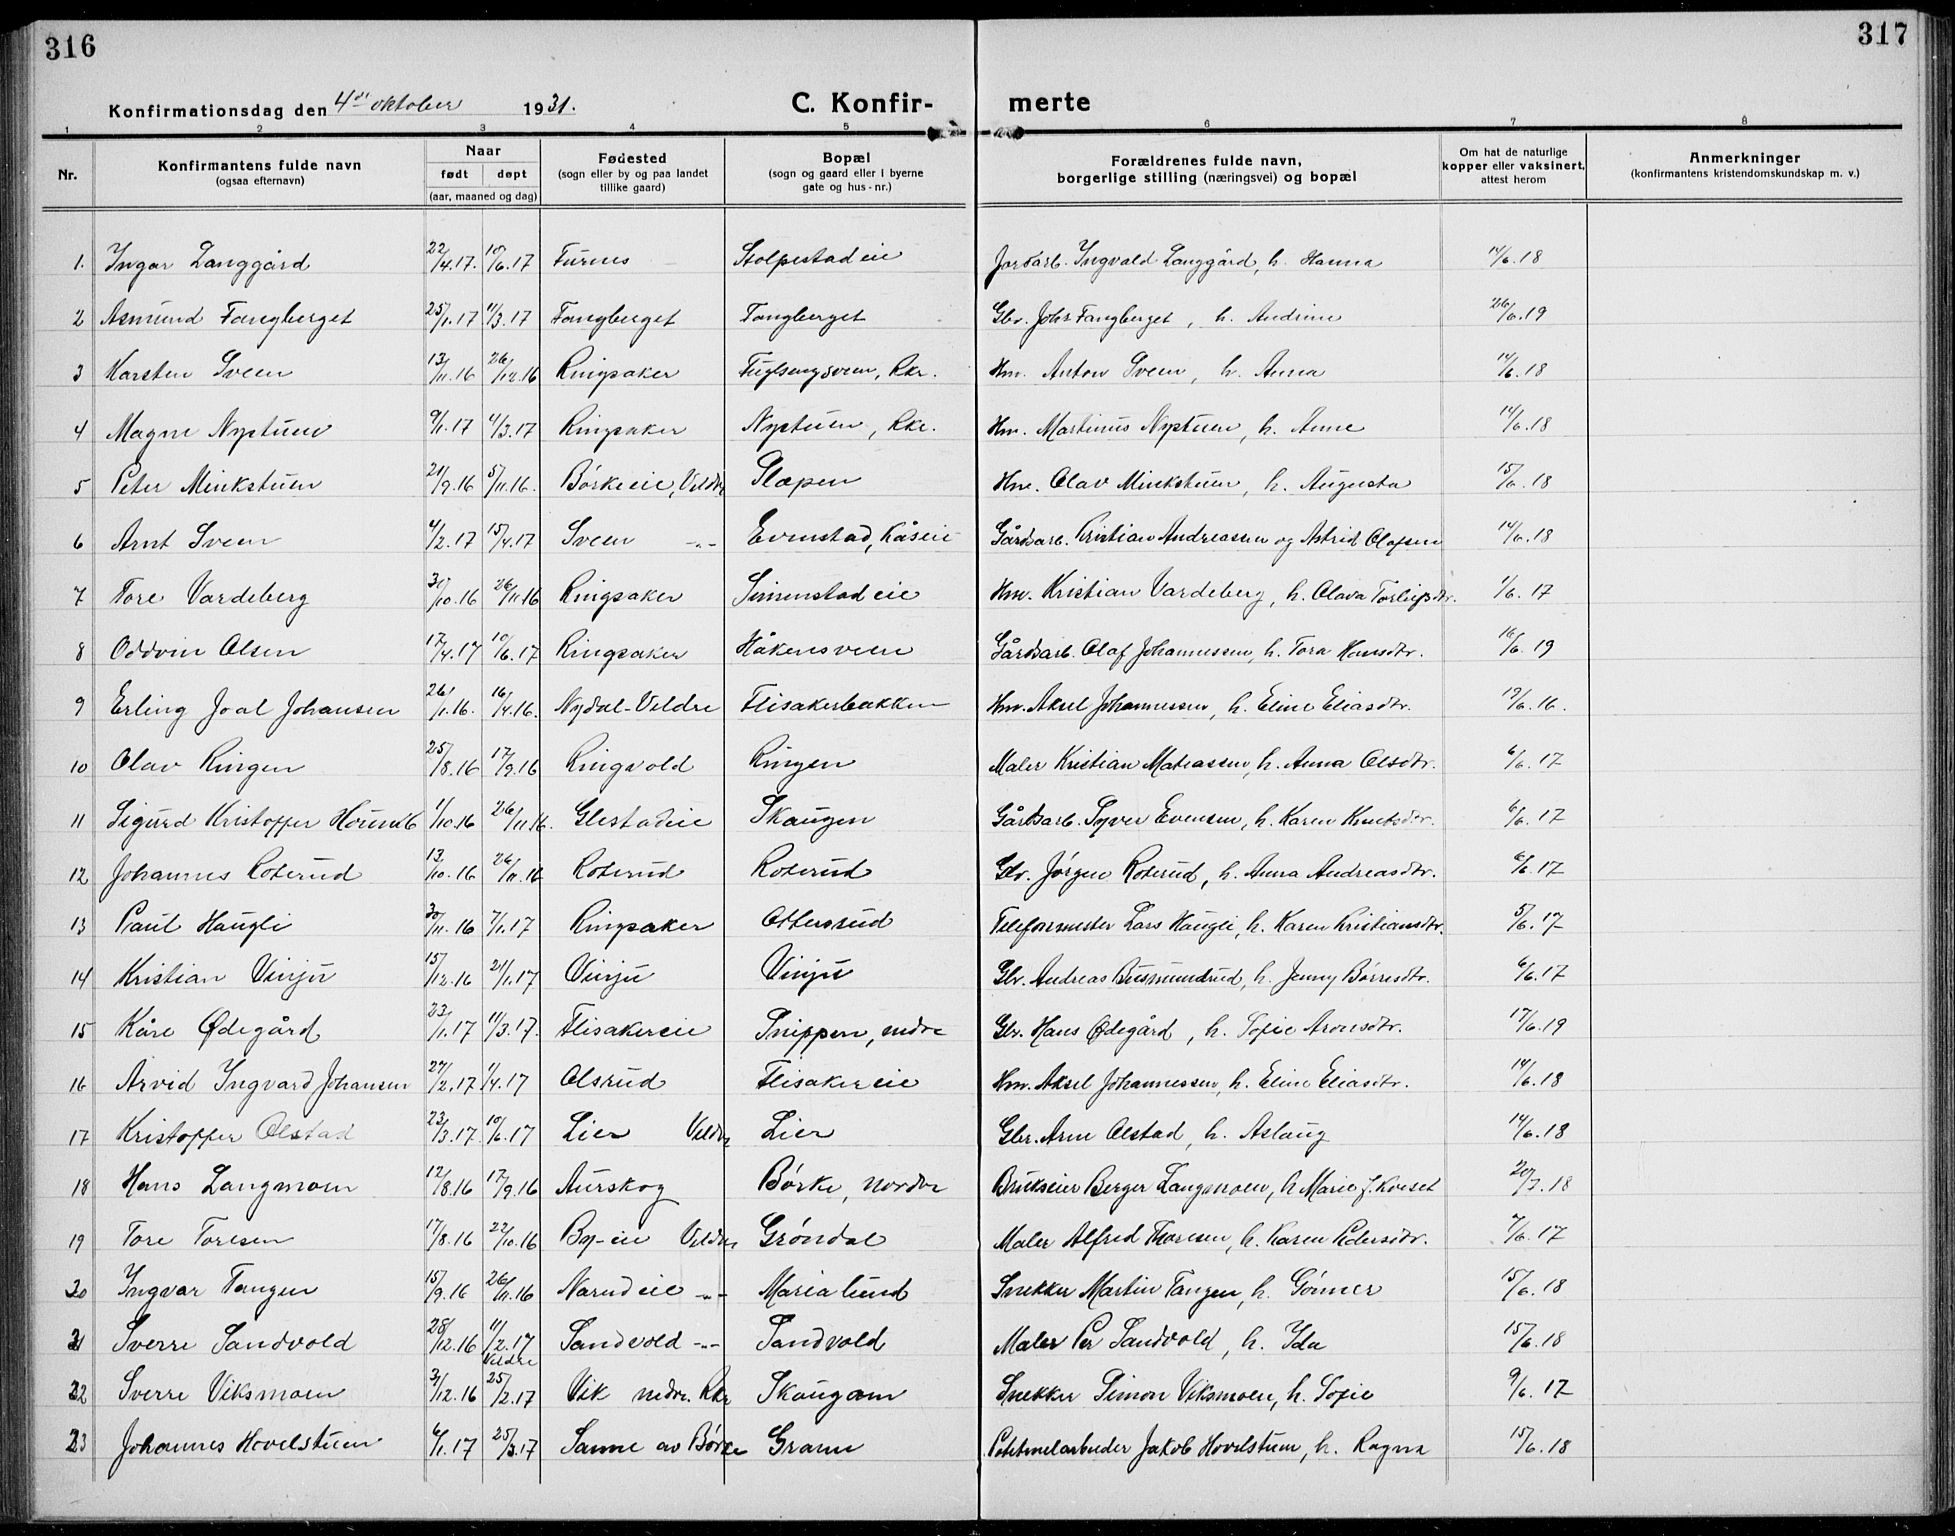 316
317
Konfirmationsdag den 4de oktober 1931.
C. Konfir- merte
1 2 3 4 5 6 7 8
Nr.
Konfirmantens fulde navn
(ogsaa efternavn)
Naar
født døpt
(aar, maaned og dag)
Fødested
(sogn eller by og paa landet
tillike gaard)
Bopæl
(sogn og gaard eller i byerne
gate og hus - nr.)
Forældrenes fulde navn,
borgerlige stilling (næringsvei) og bopæl
Om hat de naturlige
kopper eller vaksinert,
attest herom
Anmerkninger
(konfirmantens kristendomskundskap m. v.)
1. Ingar Langgård 22/4.17. 10/6.17 Furnes Stolpestadeie Jordarb. Ingvald Langgård, h. Hanna 14/6.18
2 Asmund Fangberget 25/1.17 4/3.17 Fangberget Fangberget Gbr. Johs Fangberget, h. Andrine 26/6.19
3 Karsten Sveen 13/11.16 26/12.16 Ringsaker Fuglsengsveen, Rkr. Hm. Anton Sveen, h. Anna 14/6.18
4 Magne Nystuen 9/1.17 4/3.17 Ringsaker Nystuen, Rkr. Hm. Martinus Nystuen, h. Anne 14/6.18
5 Peter Minkstuen 21/9.16 5/11.16. Børkeeie, Veldre Slapen Hm. Olav Minkstuen, h. Augusta 15/6.18
6 Arnt Sveen 4/2.17 15/4.17 Sveen -"- Evenstad, Kåseie Gårdsarb. Kristian Andreassen og Astrid Olafsen 14/6.18
7 Tore Vardeberg 31/10.16 26/11.16 Ringsaker Simenstadeie Hm. Kristian Vardeberg, h. Olava Torleifsdtr. 1/6.17
8 Oddvin Olsen 17/4.17 10/6.17 Ringsaker Håkensveen Gårdsarb. Olaf Johannessen, h. Tora Hansdtr. 16/6.19
9 Erling Joal Johansen 26/1.16. 16/4.16. Nydal-Veldre Flisakerbakken Hm. Aksel Johannessen, h. Eline Eliasdtr. 19/6.16.
10 Olav Ringen 25/8.16 17/9.16 Ringvold Ringen Maler Kristian Mateassen, h. Anna Olsdtr. 6/6.17
11 Sigurd Kristoffer 1/10.16 26/11.16. Glestadeie Skaugen Gårdsarb. Syver Evensen, h. Karen Knutsdtr. 6/6.17
12 Johannes Roterud 13/10.16 26/11.16 Roterud Roterud Gbr. Jørgen Roterud, h. Anna Andreasdtr. 6/6.17
13 Paul Haugli 30/11.16 7/1.17 Ringsaker Ottersrud Telefonmester Lars Haugli, h. Karen Kristiansdtr. 5/6.17
14 Kristian Vinju 15/12.16 21/1.17 Vinju Vinju Gbr. Andreas Busmundrud, h. Jenny Børresdtr. 6/6.17
15 Kåre Ødegård 23/1.17 11/3.17. Flisakereie Snippen, nedre Gbr. Hans Ødegård, h. Sofie Aronsdtr. 17/6.19
16 Arvid Ingvard Johansen 27/2.17 1/4.17 Olsrud Flisakereie Hm. Aksel Johannessen, h. Eline Eliasdtr. 14/6.18
17 Kristoffer Olstad 23/3.17. 10/6.17 Lier Veldre Lier Gbr. Arne Olstad, h. Aslaug 14/6.18
18 Hans Langmoen 12/8.16 17/9.16 Aurskog Børke, nordre Brukseier Berger Langmoen, h. Marie J. Kveset 20/7.18
19 Tore Toresen 17/8.16 22/10.16 By-eie Veldre Grøndal Maler Alfred Thoresen, h. Karen Pedersdtr. 7/6.17
20 Ingvar Tangen 15/9.16 26/11.16 Narudeie -"- Marialund Snekker Martin Tangen, h. Gønner 15/6.18
21 Sverre Sandvold 28/12.16 11/2.17 Sandvold -"- Sandvold Maler Per Sandvold, h. Ida 15/6.18
Veldre
22 Sverre Viksmoen 3/12.16 25/2.17 Vik nedre. Rkr Skaugom Snekker Simon Viksmoen, h. Sofie 9/6.17
23 Johannes Hovelstuen 6/1.17 25/3.17 Sanne av Børke Grann Potetmelarbeider Jakob Hovelstuen, h. Ragna 15/6.18